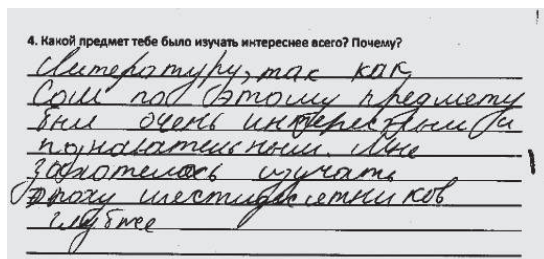 4. Какой предмет тебе было изучать интереснее всего? Почему?
Литературу, так как
Сом по этому предмету
был очень интересным и
познавательным. Мне
захотелось изучать
эпоху шестидесятников
глубже